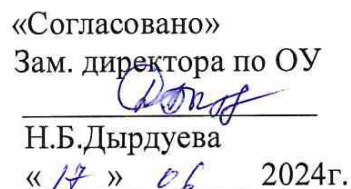 «Согласовано»
Зам. директора по ОУ
Н.Б.Дырдуева
« 17 » 06 2024г.